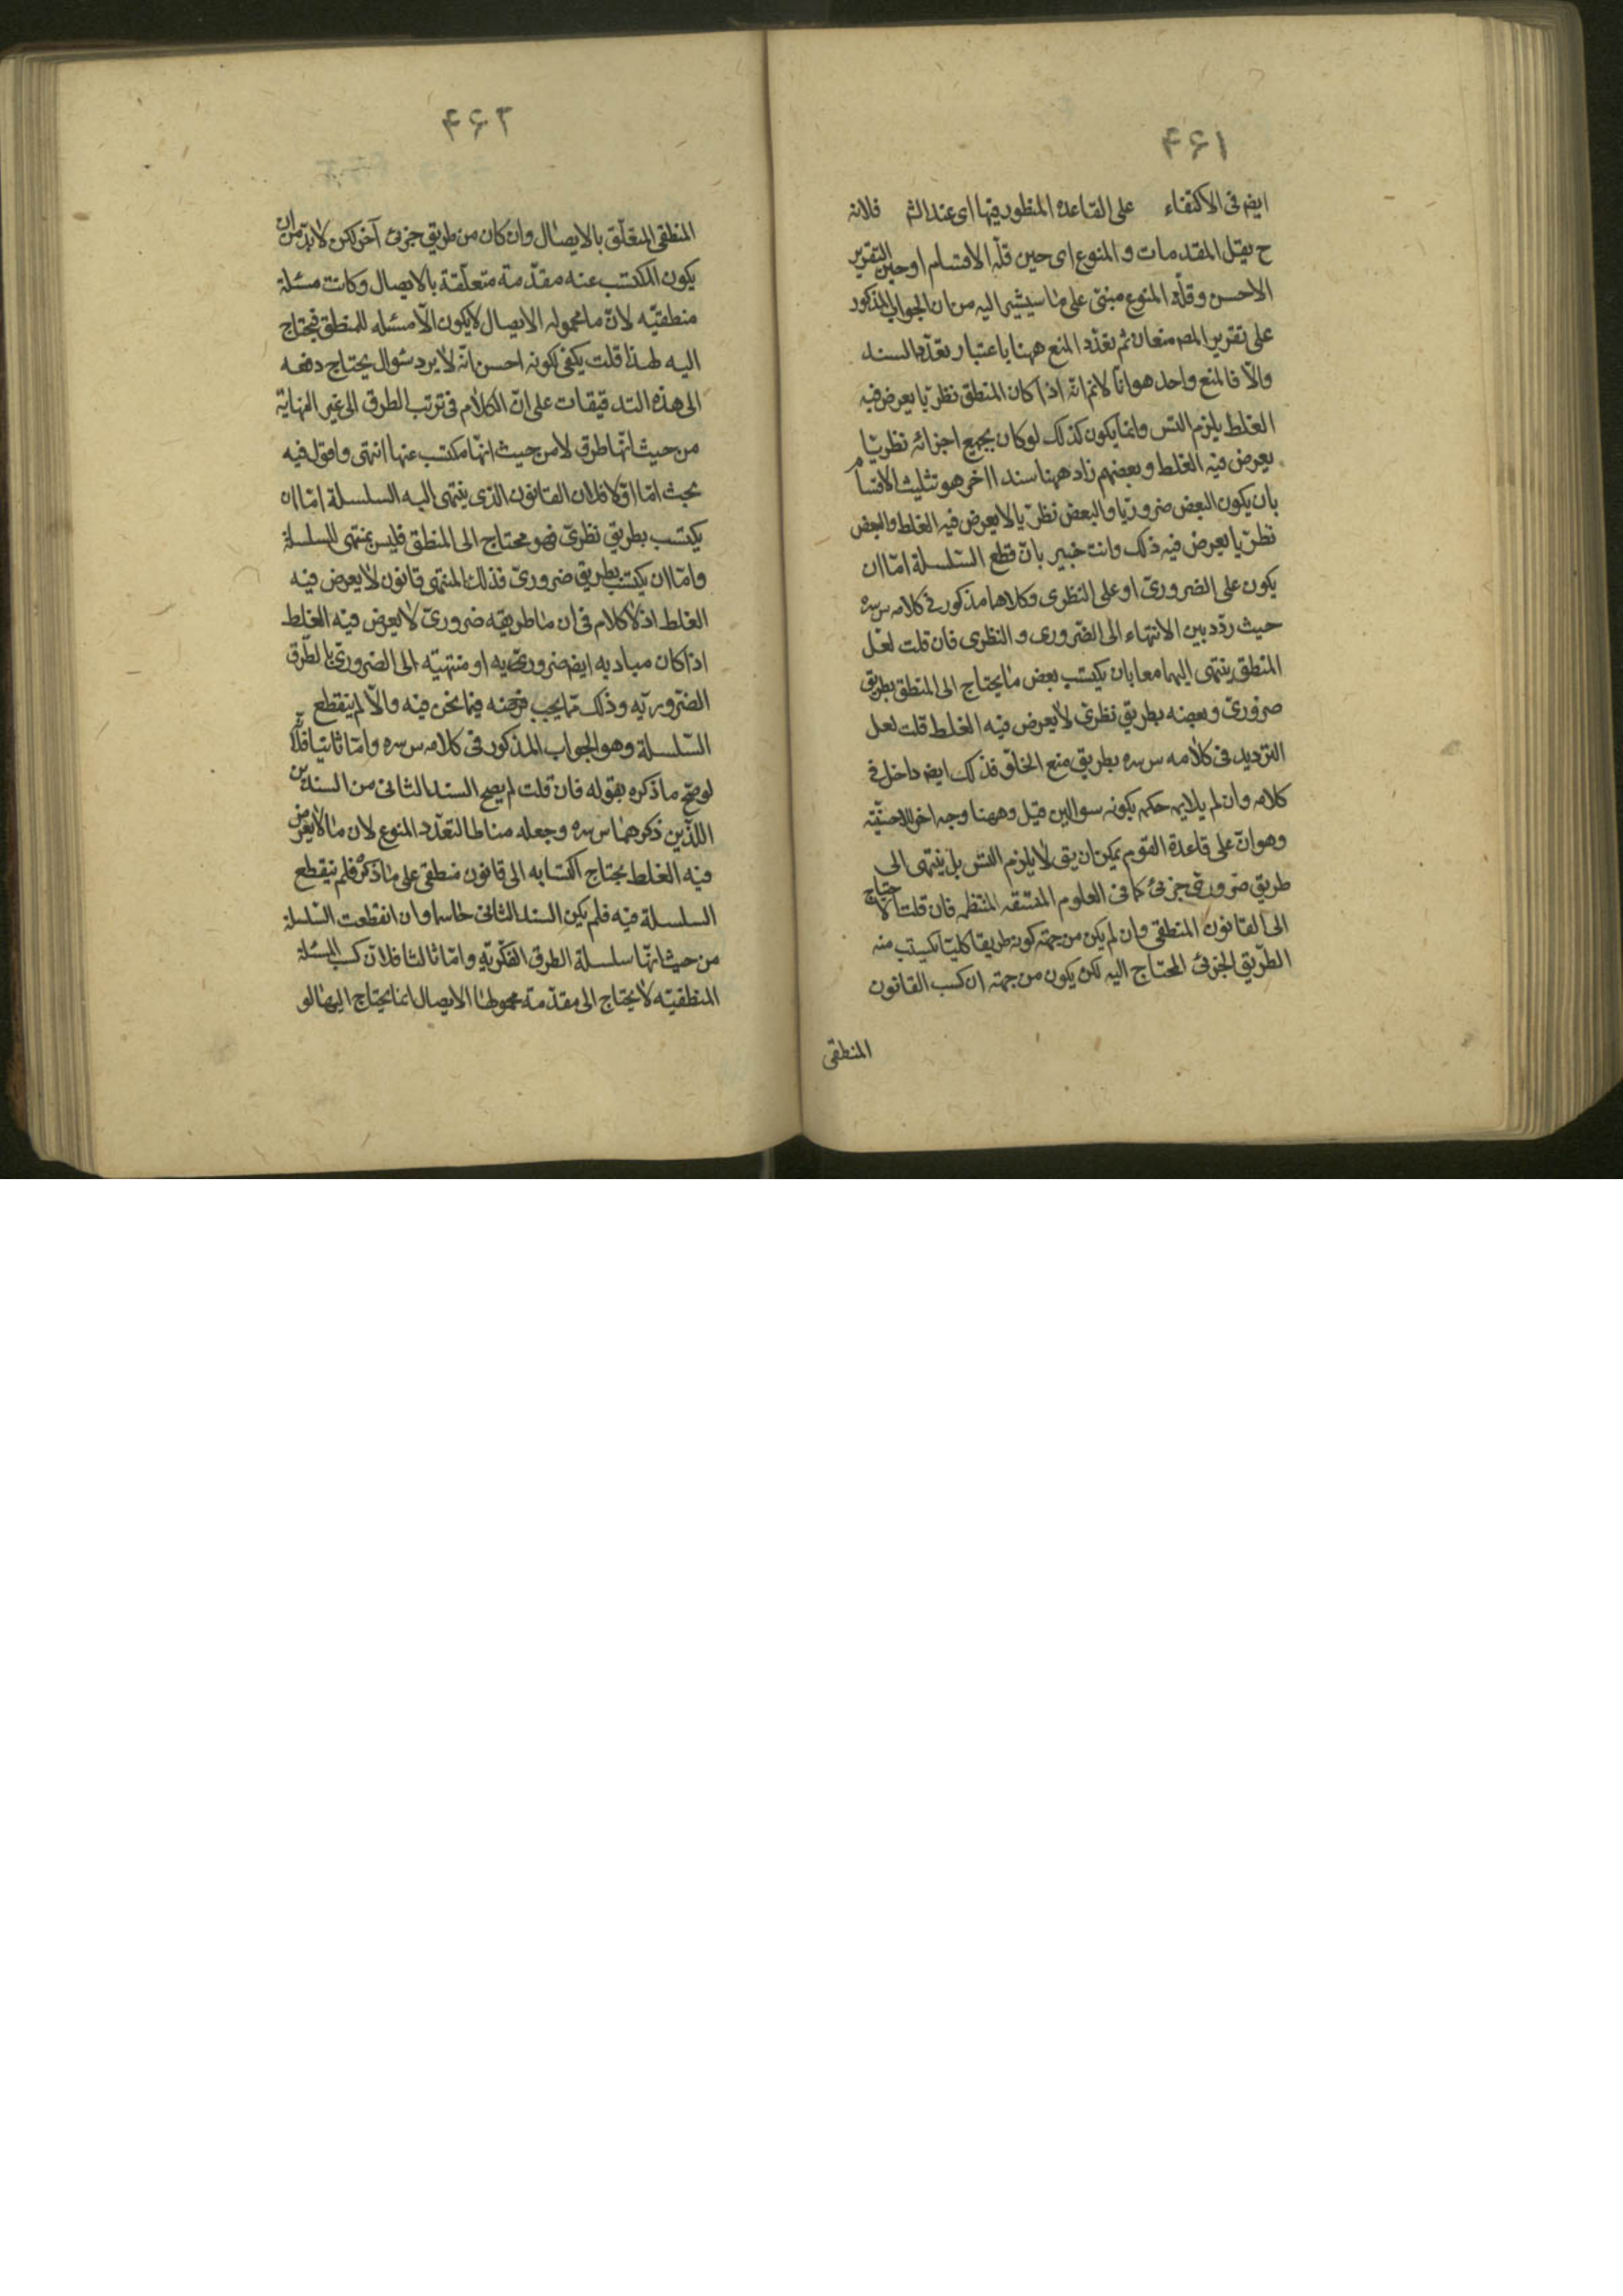 ۴۶۱
ايضه فى الاكتفاء على القاعده المنظور فيها اى عند الشم فلانه
ح يقل المقدمات و المنوع اى حين قلّه الاقسام او حين التقرير
الاحسن و قلّه المنوع مبنى على ما سيشير اليه من ان الجواب المذكور
على تقرير المصه منعان ثم تعدّد المنع ههنا باعتبار تعدّد السند
والّا فالمنع واحد هو انّا لانم انّه اذا كان المنطق نظريّا يعرض فيه
الغلط يلزم التس وانما يكون كذلك لو كان بجميع اجزائه نظريّا
يعرض فيه الغلط و بعضهم زاد ههنا سندا اخر هو تثليث الاقسام
بان يكون البعض ضروريّا والبعض نظريّا لا يعرض فيه الغلط والبعض
نظريّا يعرض فيه ذلك وانت خبير بانّ قطع السّلسلة امّا ان
يكون على الضرورىّ او على النظرى وكلاهما مذكور فى كلامه س سره
حيث ردّد بين الانتهاء الى الضّرورى و النظرى فان قلت لعل
المنطق ينتهى اليهما معا بان يكتسب بعض ما يحتاج الى المنطق بطريق
ضرورىّ و بعضه بطريق نظرىّ لا يعرض فيه الغلط قلت لعل
الترديد فى كلامه س سره بطريق منع الخلوّ فذلك ايضه داخل فى
كلامه وان لم يلايمه حكمه بكونه سوالين قيل وههنا وجه اخر للاحسنيّة
وهو انّ على قاعدة القوم يمكن ان يق لا يلزم التس بل ينتهى الى
طريق ضرورىّ جزئى كما فى العلوم المتسقه المنتظمه فان قلت الاحتياج
الى القانون المنطقى وان لم يكن من جهة كونه طريقا كليّا يكتسب منه
الطّريق الجزئى المحتاج اليه لكن يكون من جهته ان كسب القانون
المنطقى
۴۶۲
المنطقى المتعلّق بالايصال وان كان من طريق جزئى آخر لكن لا بدّ من ان
يكون المكتسب عنه مقدّمة متعلّقة بالايصال وكانت مسئلة
منطقيّه لانّ ما محموله الايصال لا يكون الّا مسئله للمنطق فيحتاج
اليه لهذا قلت يكفى لكونه احسن انّه لا يرد سُوال يحتاج دفعه
الى هذه التدقيقات على انّ الكلام فى ترتب الطرق الى غير النهاية
من حيث انّها طرق لا من حيث انّها مكتسب عنها انتهى واقول فيه
بحث امّا اوّلا فلان القانون الذى ينتهى اليه السلسلة امّا ان
يكتسب بطريق نظرىّ فهو محتاج الى المنطق فليس بمنتهى للسلسلة
وامّا ان يكتسب بطريق ضرورىّ فذلك المنتهى قانون لا يعرض فيه
الغلط اذ لا كلام فى ان ما طريقه ضرورىّ لا يعرض فيه الغلط
اذا كان مباديه ايضه ضروريّه او منتهيّه الى الضرورىّ بالطّرق
الضّروريّه وذلك ممّا يجب فرضه فيما نحن فيه والّا لم ينقطع
السّلسلة وهو الجواب المذكور فى كلامه س سره وامّا ثانيا فلانّه
لو صحّ ما ذكره بقوله فان قلت لم يصح السند الثانى من السندين
اللذين ذكرهما س سره وجعله مناطا لتعدّد المنوع لان ما لا يعرض
فيه الغلط يحتاج اكتسابه الى قانون منطقى على ما ذكره فلم ينقطع
السلسلة فيه فلم يكن السند الثانى حاسما وان انقطعت السّلسلة
من حيث انّها سلسلة الطرق الفكريّه وامّا ثالثا فلانّ كسب المسئلة
المنطقيّه لا يحتاج الى مقدّمة محمولها الايصال انما يحتاج اليها لو